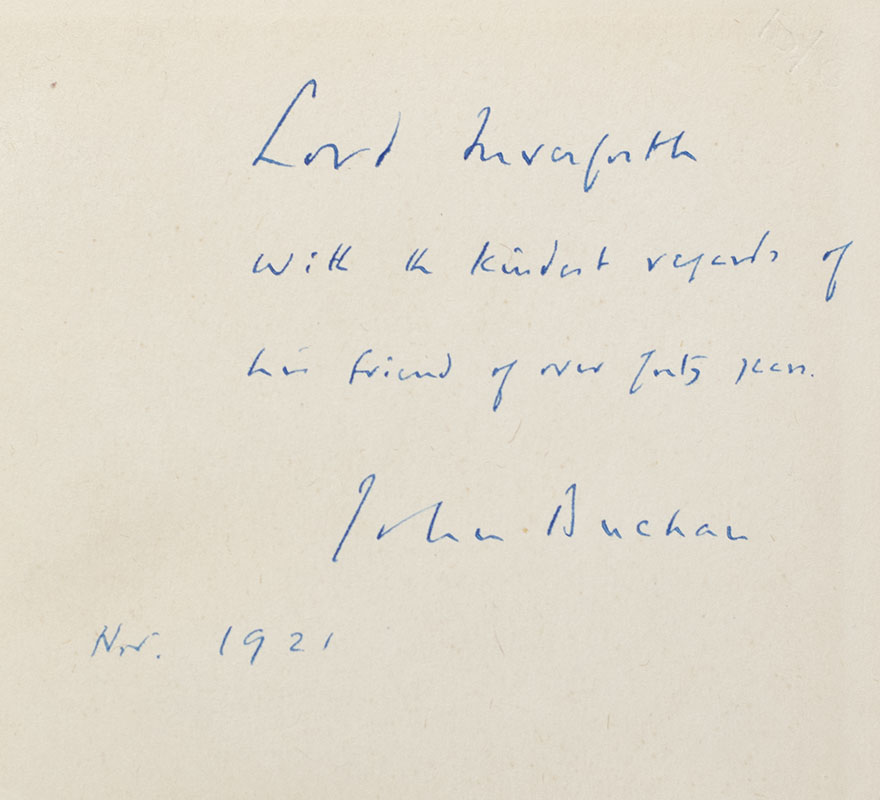 Lord Inverforth
with the kindest regards of
his friend of over forty years.
John Buchan
Nov. 1921